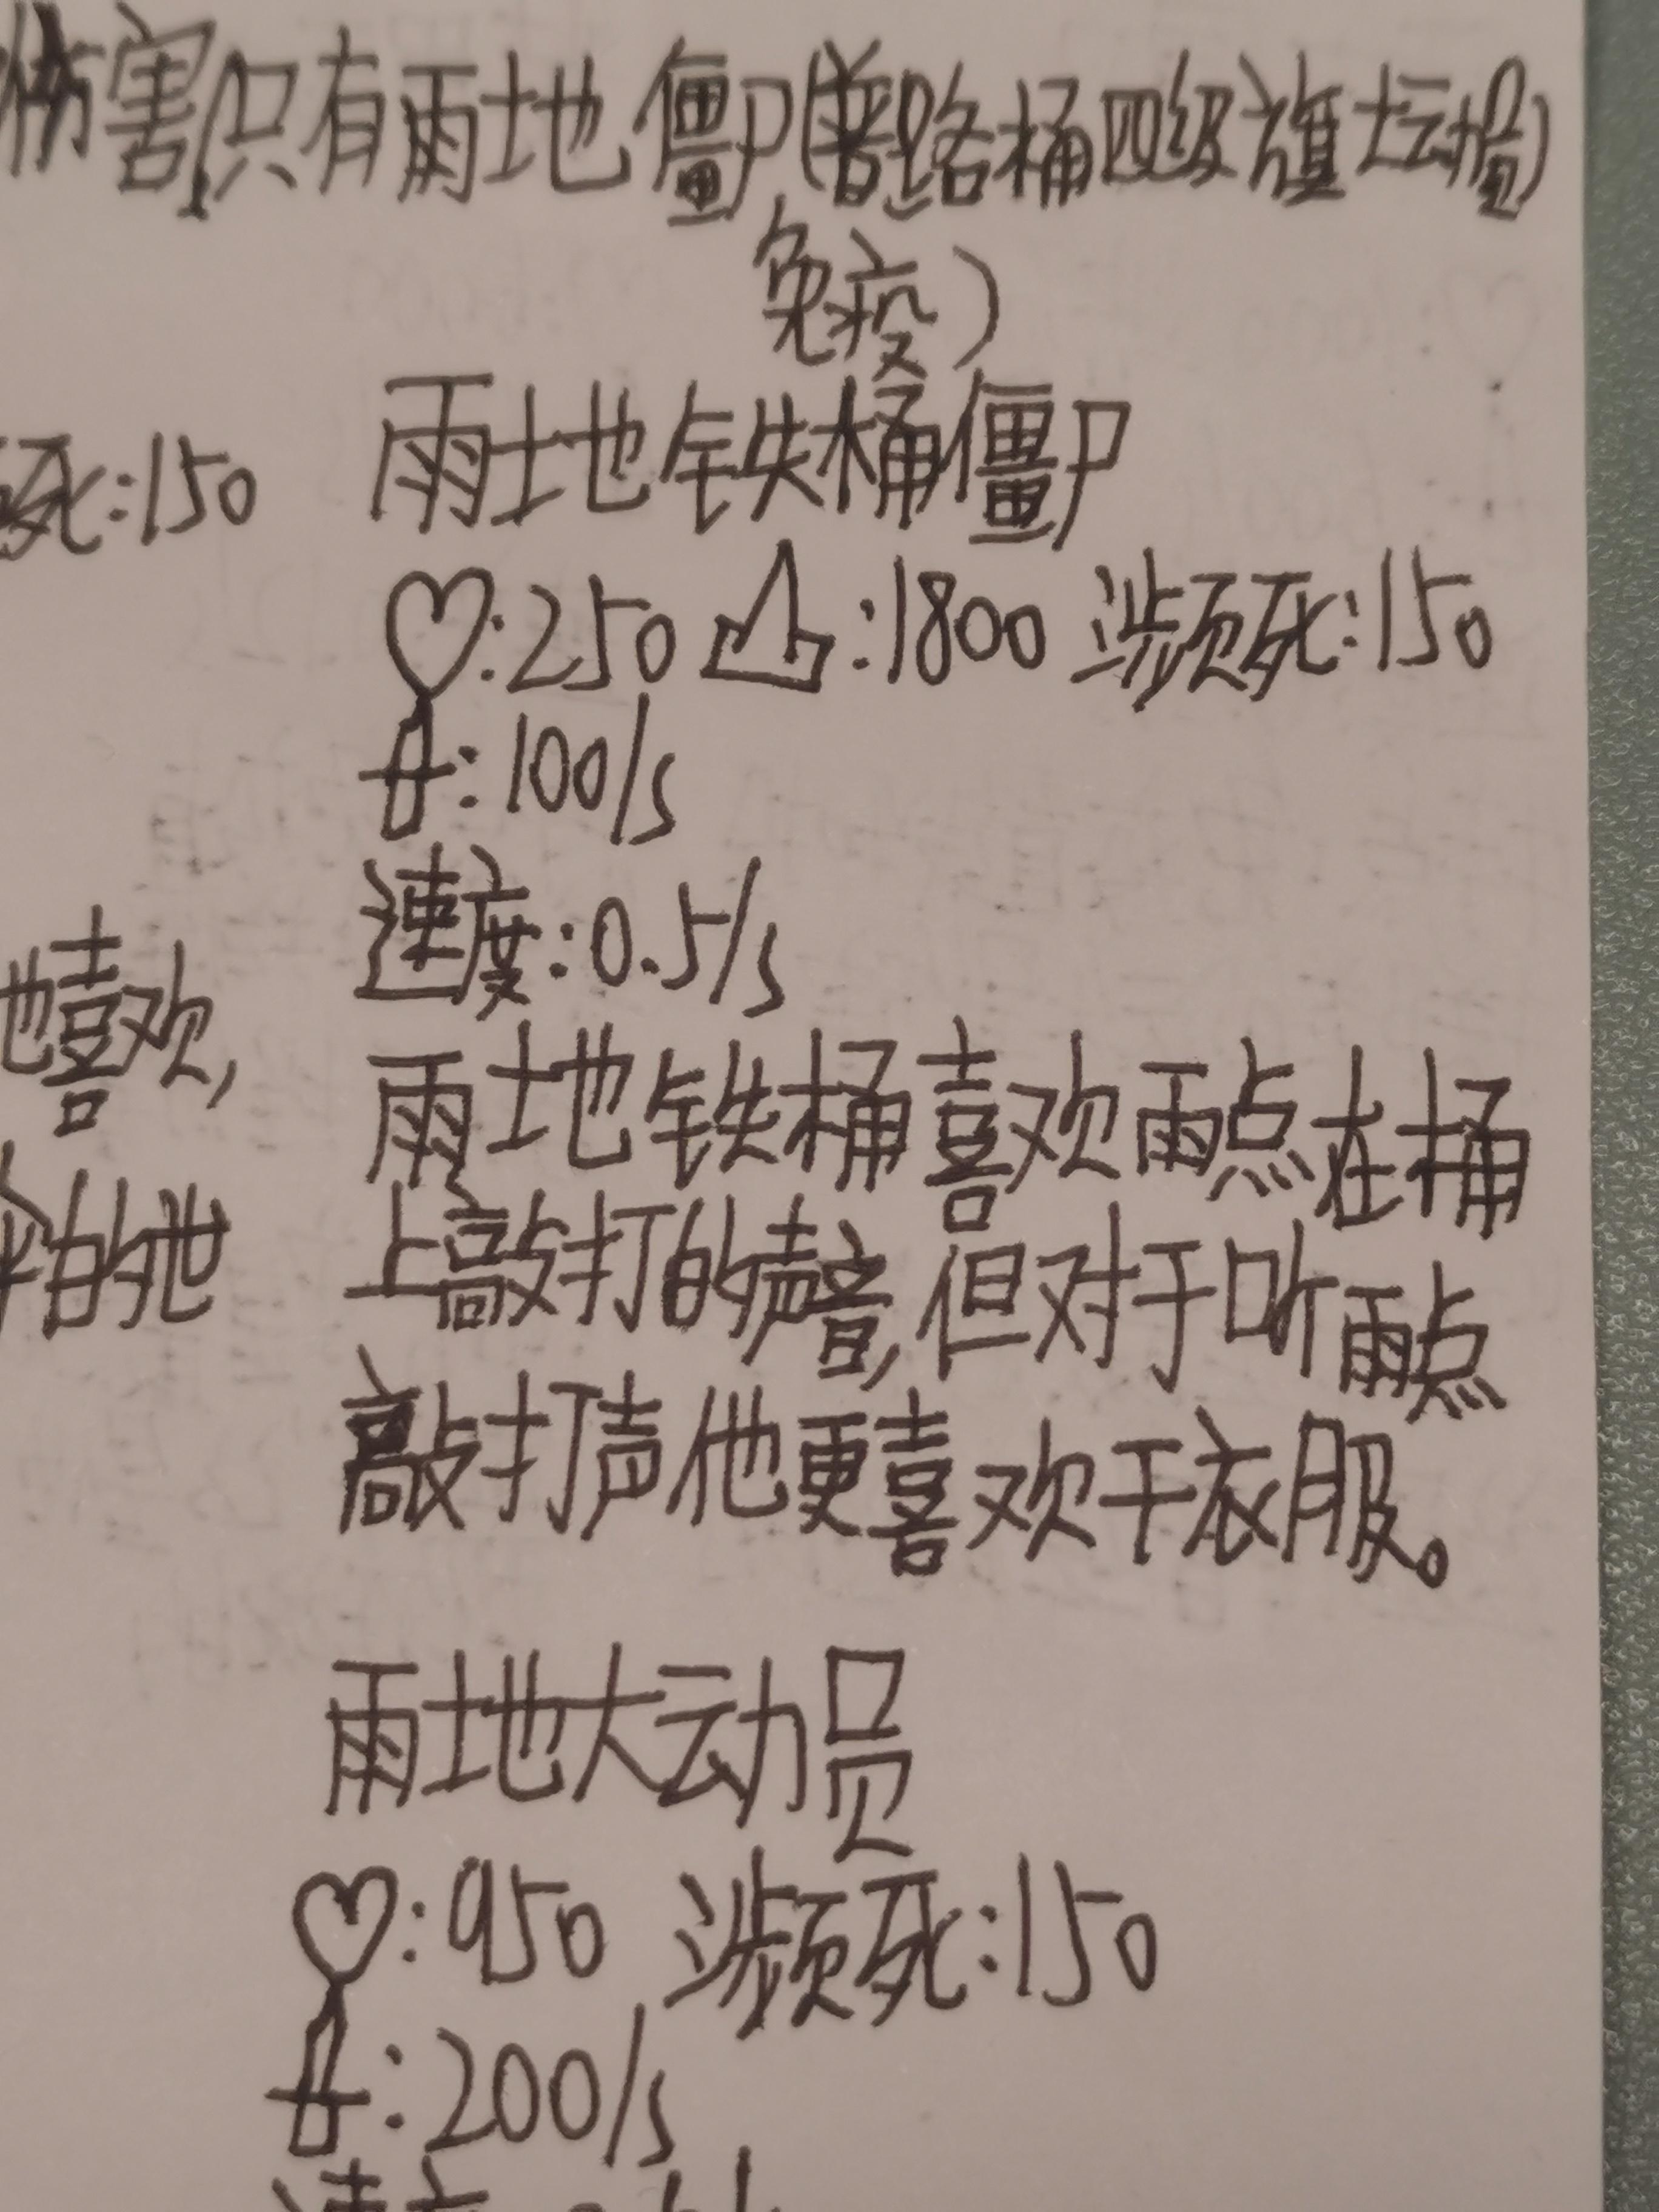 伤害,只有雨地僵尸(普路桶四级旗坛揭)
免疫)
死:150
雨地铁桶僵尸
♡:250 :1800 濒死:150
:100/s
速度:0.5/s
他喜欢,
伞的他
雨地铁桶喜欢雨点在桶
上敲打的声音,但对于听雨点
敲打声他更喜欢干衣服。
雨地大动员
♡:950 濒死:150
:200/s
速度